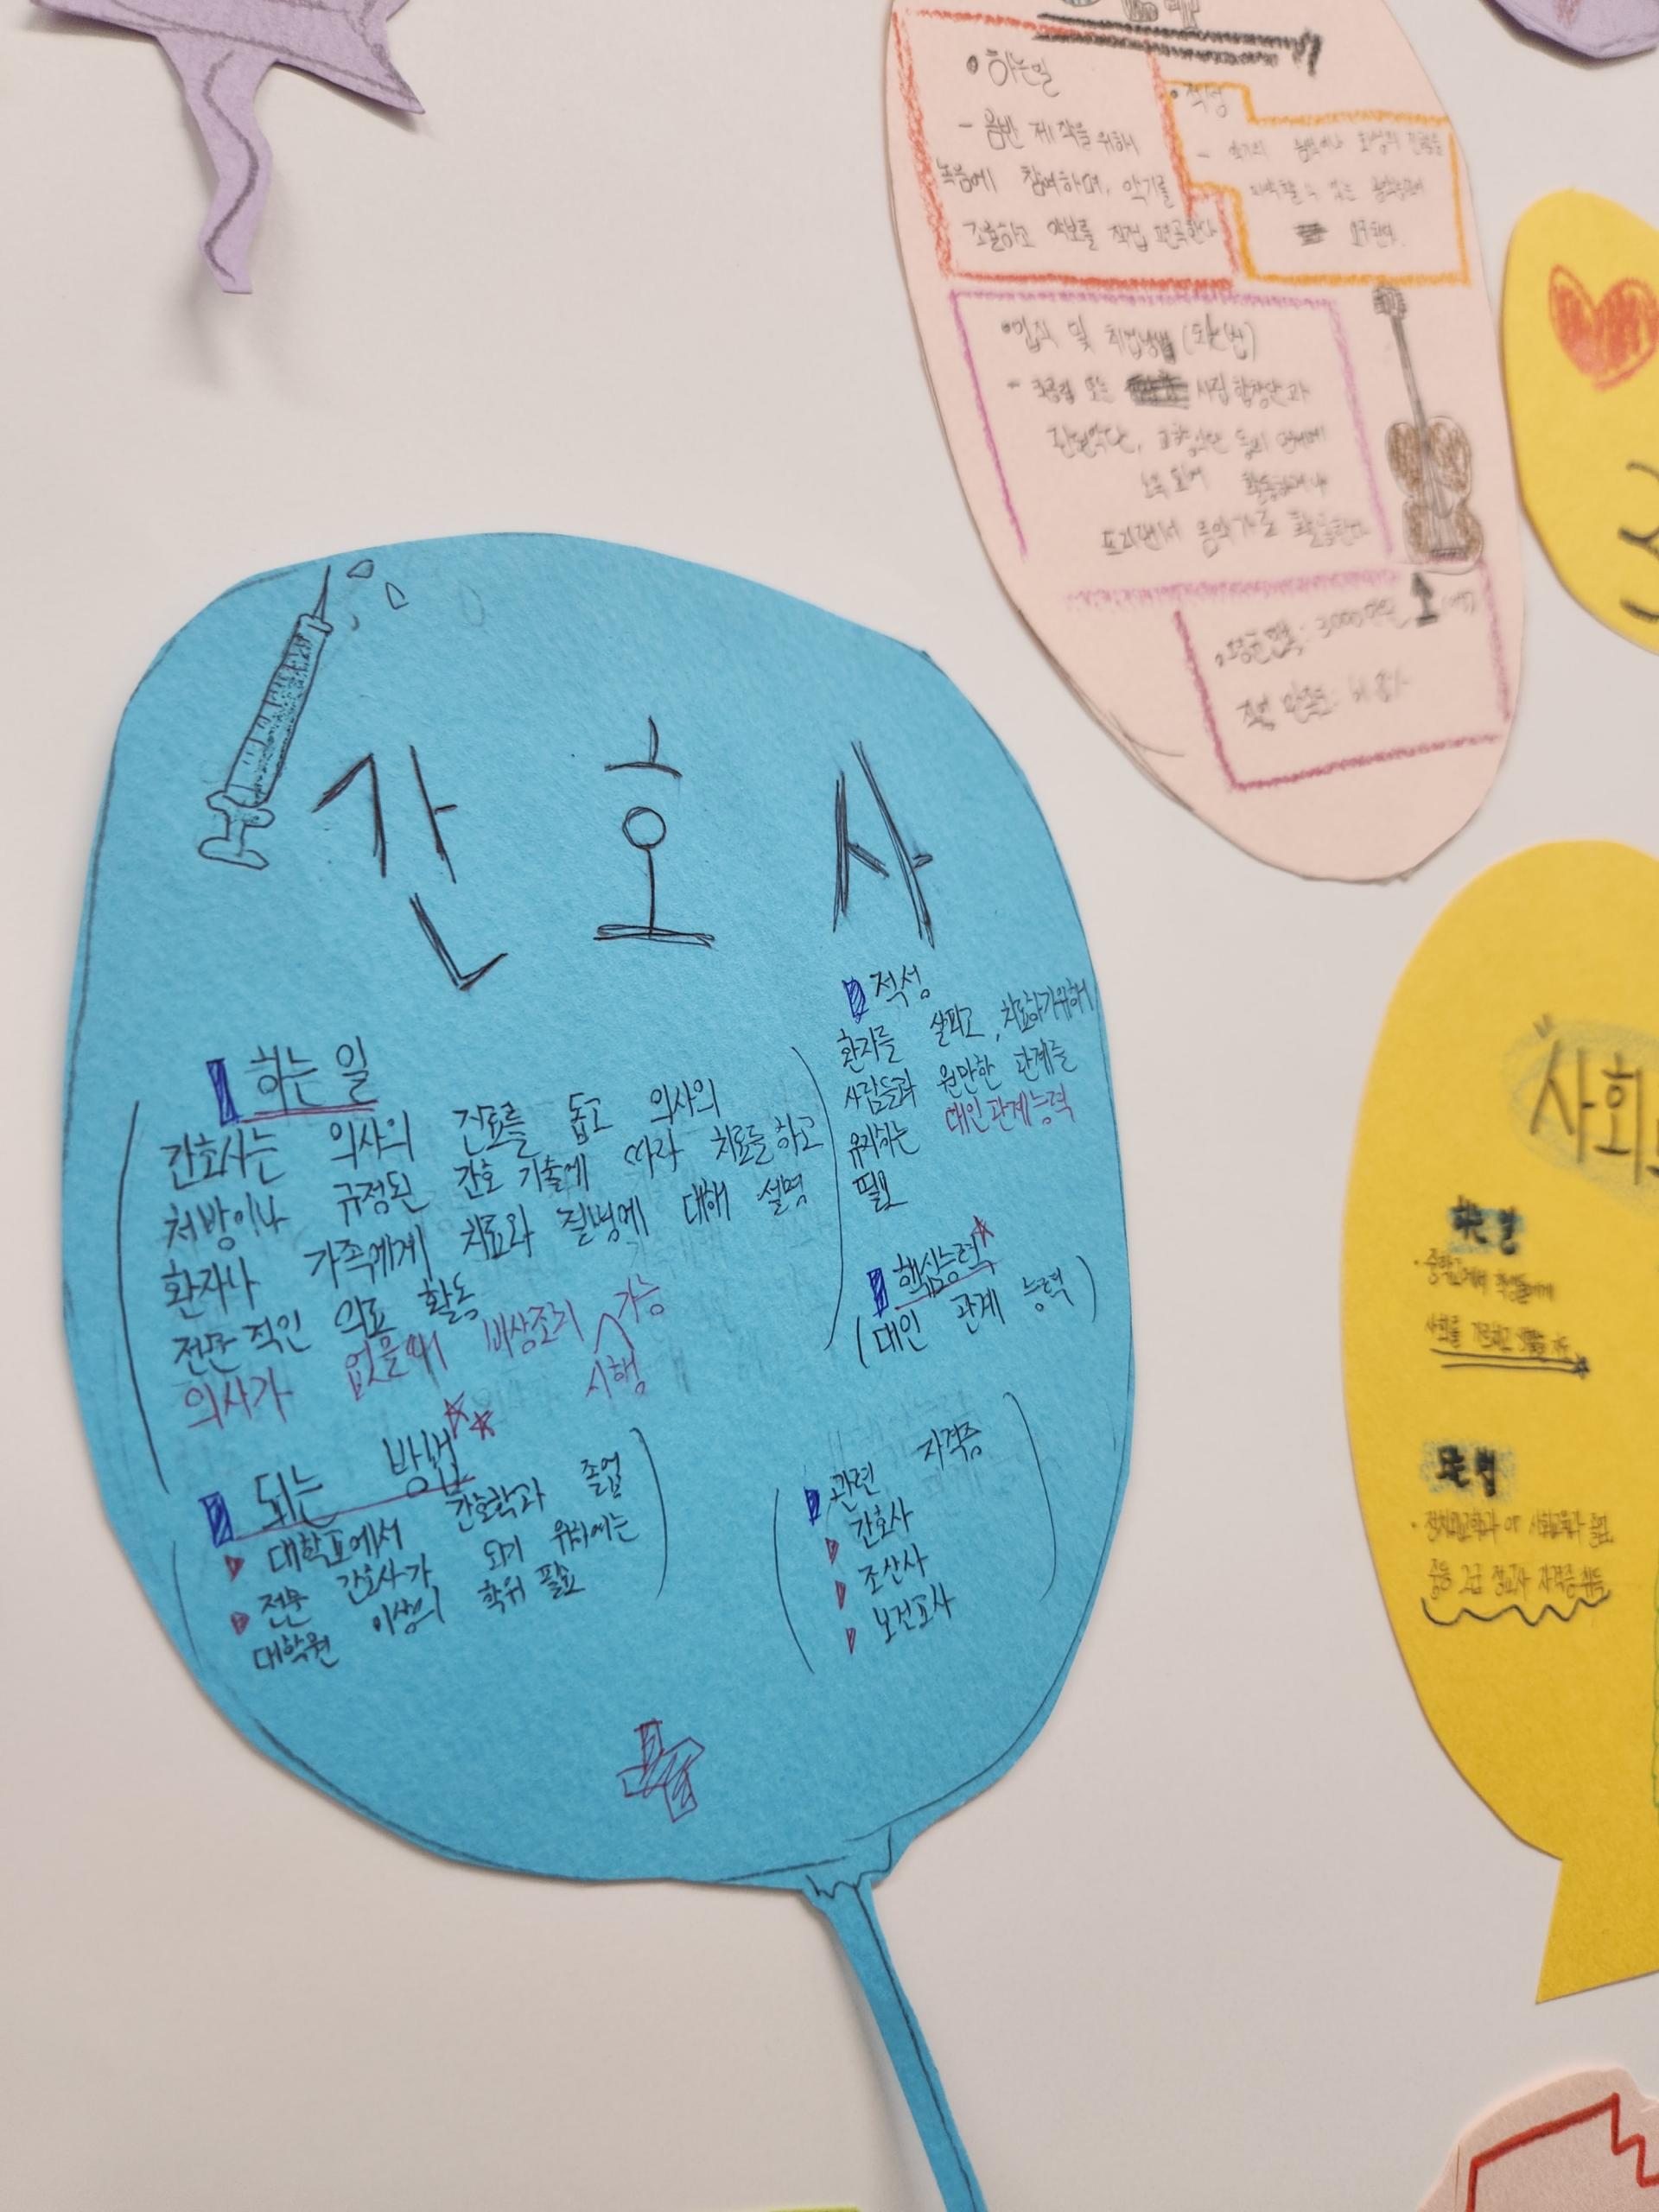 간호사
하는 일
간호사는 의사의 진료를 돕고 의사의
처방이나 규정된 간호 기술에 따라 치료를 하고
환자나 가족에게 치료와 질병에 대해 설명
전문적인 의료 활동
의사가 없을때 비상조치 시행 가능
되는 방법
대학교에서 간호학과 졸업
전문 간호사가 되기 위해서는
대학원 이상의 학위 필요
적성
환자를 살피고, 치료하기위해
사람들과 원만한 관계를
유지하는 대인관계능력
필요
핵심능력
(대인 관계 능력)
관련 자격증
간호사
조산사
보건교사
하는일
- 음반 제작을 위해
녹음에 참여하며, 악기를
조율하고 악보를 직접 편곡한다
적성
입직 및 취업방법
- 국공립 또는 사립 합창단과
활동하거나
프리랜서 음악가로 활동한다
평균연봉: 3000만원
직업 만족도:
사회
하는 일
중학교에서 학생들에게
사회를 가르치고
되는 법
중등 2급 정교사 자격증 취득